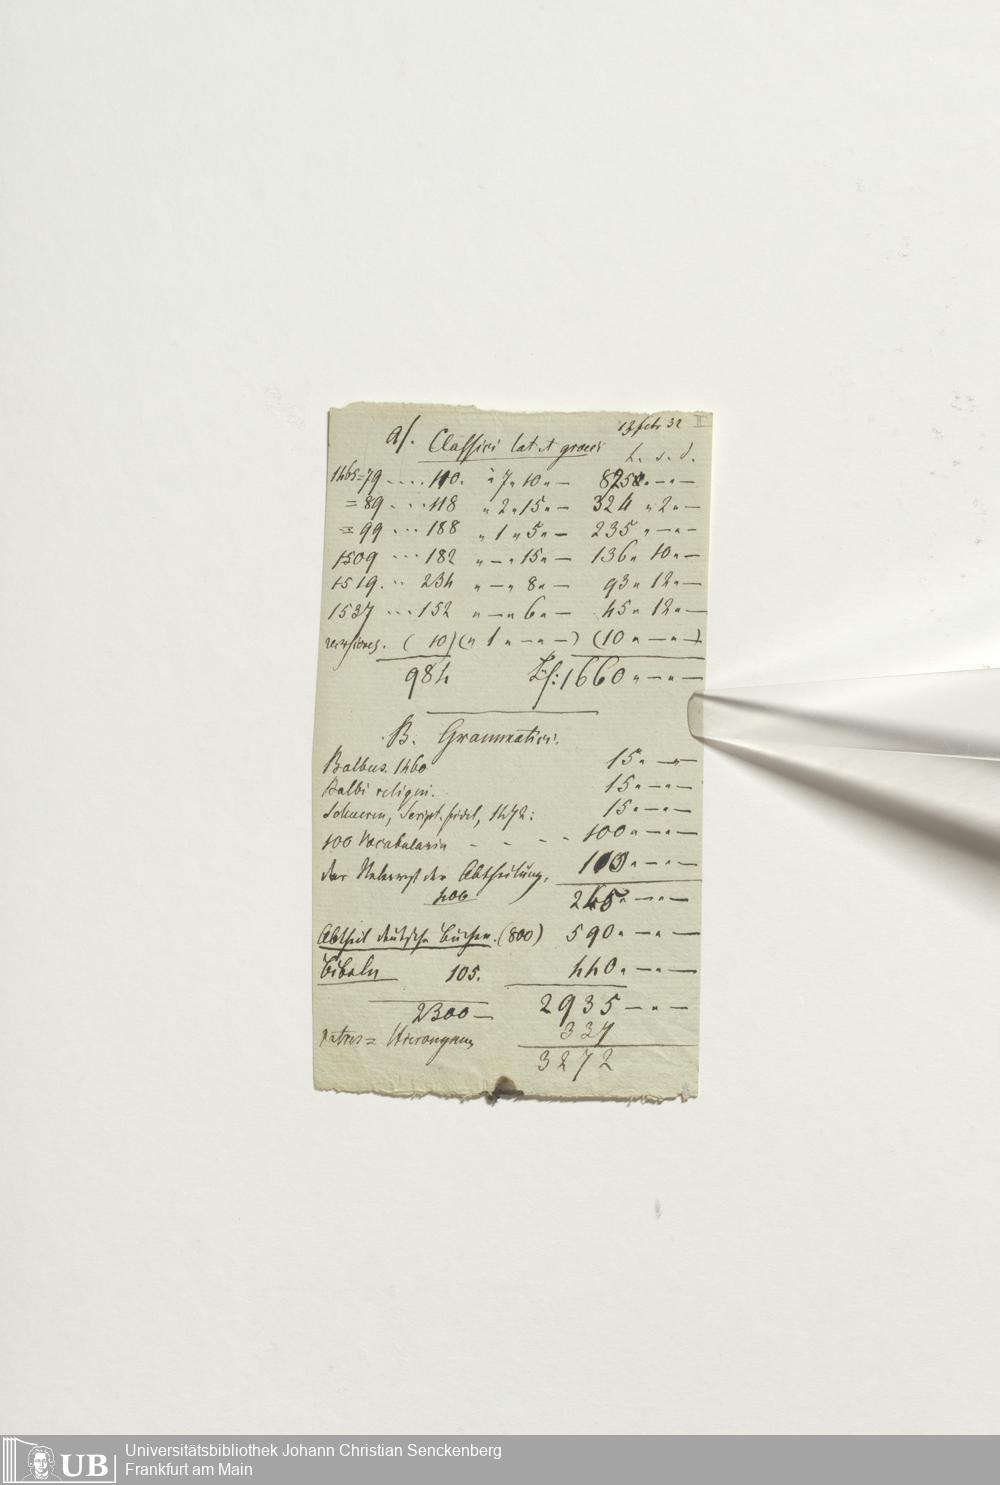 13 febr 32 II
a/. Classici lat. et graeci
L. s. d.
1465=79 .... 110. à 7„ 10„ — 825„ — „ —
= 89 ... 118 „ 2„ 15„ — 324 „ 2„ —
= 99 ... 188 „ 1 „ 5„ — 235 „ — „ —
1509 ... 182 „ — „ 15„ — 136„ 10„ —
1519. .. 234 „ — „ 8„ — 93„ 12„ —
1537 ... 152 „ — „ 6„ — 45„ 12„ —
versiones. ( 10) („ 1 „ — „ —) (10 „ — „ —)
984 1660 „ — „ —
B. Grammatici.
Balbus. 1460 15„ — „ —
Balbi religni. 15„ — „ —
Script. fidel, 1472: 15„ — „ —
100 Vocabularia - - - - 100„ — „ —
der Ueberrest der Abtheilung, 100„ — „ —
400 245„ — „ —
Abtheil deutscher Bücher. (800) 590„ — „ —
Bibeln 105. 440„ — „ —
2300 — 2935 — „ —
patres = Hieronymus 337
3272
UB Universitätsbibliothek Johann Christian Senckenberg
Frankfurt am Main